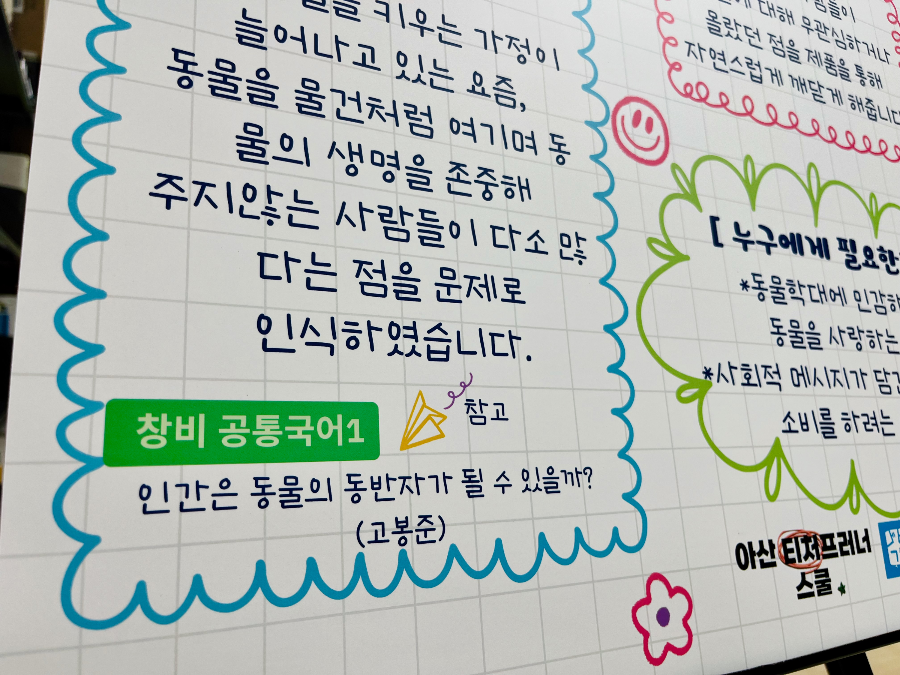 키우는 가정이
늘어나고 있는 요즘,
동물을 물건처럼 여기며 동
물의 생명을 존중해
주지않는 사람들이 다소 많
다는 점을 문제로
인식하였습니다.
창비 공통국어1
참고
인간은 동물의 동반자가 될 수 있을까?
(고봉준)
대해 무관심하거나
몰랐던 점을 제품을 통해
자연스럽게 깨닫게 해줍니다
[ 누구에게 필요한
*동물학대에 민감하
동물을 사랑하는
*사회적 메시지가 담긴
소비를 하려는
아산 티처프러너
스쿨